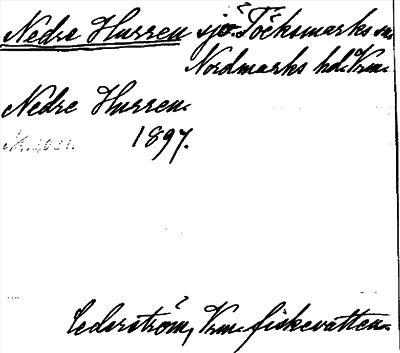 Nedre Hurren sjö. Töcksmarks sn.
Nordmarks hd. Vrm.
Nedre Hurren.
1897.
Cederström, Vrm. fiskevatten.